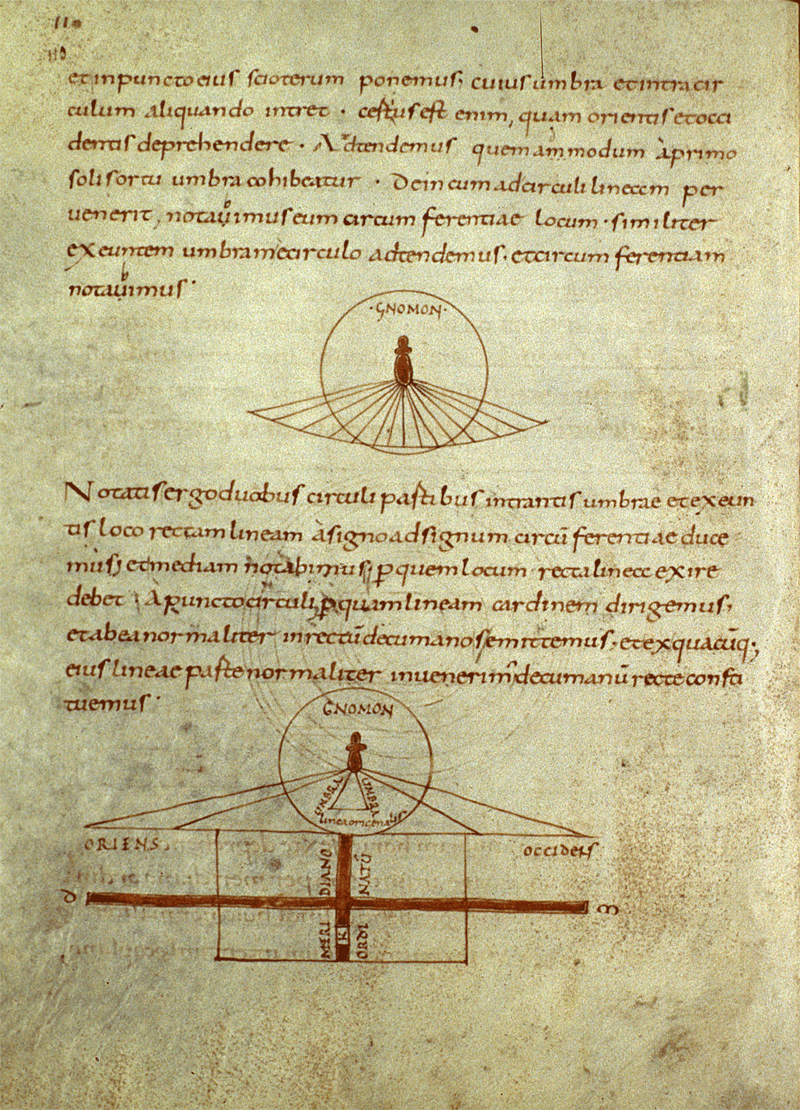 110
110
et in puncto eius scioterum ponemus; cuius umbra et intra cir
culum aliquando intret · certius est enim, quam orientis et occi
dentis deprehendere · Adtendemus quem ammodum à primo
solis ortu umbra cohibeatur · Dein cum ad circuli lineam per
uenerit, notauimus eum circum ferentiae locum · similiter
exeuntem umbram e circulo adtendemus · et circum ferentiam
notauimus ·
· GNOMON ·
Notatis ergo duabus circuli partibus intrantis umbrae et exeun
tis loco rectam lineam à signo ad signum circū ferentiae duce
mus; et mediam notabimus; p quem locum recta linea exire
debet ; A puncto circuli; p quam lineam cardinem dirigemus;
et ab ea normaliter in rectū decumanos emittemus · et ex quacūq;
eius lineae parte normaliter inuenerim decumanū recte consti
tuemus ·
GNOMON
UMBRA UMBRA
ORIENS. OCCIDENS
D M
MERI DIANO
ORDI NATŪ
K